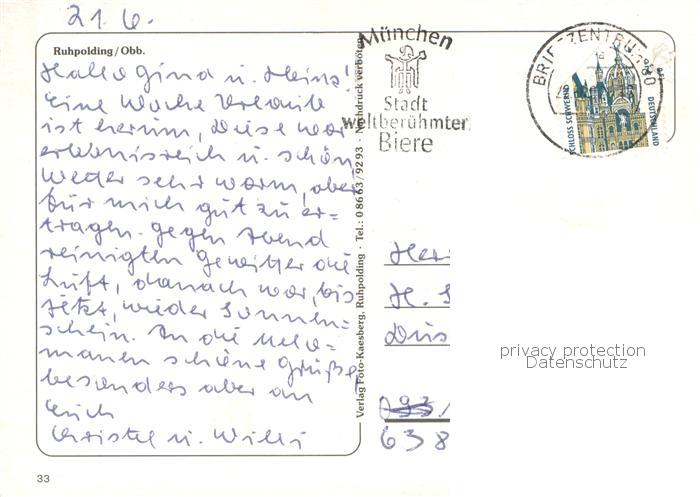 21.6.
Ruhpolding/Obb.
Hallo Gina u. Heinz!
Eine Woche Urlaub
ist herum, diese war
erlebnisreich u. schön
Wetter sehr warm, aber
für mich gut zu er=
tragen. gegen Abend
reinigten Gewitter die
Luft, danach war, bis
jetzt, wieder Sonnen=
schein. An die
manen schöne Grüße,
besonders aber an
Euch
Christel u. Willi
33
Verlag Foto-Kaesberg, Ruhpolding · Tel.: 08663/9293 · Nachdruck verboten
München
Stadt
weltberühmter
Biere
BRIEFZENTRUM 80
SCHLOSS SCHWERIN
DEUTSCHLAND
H. S
093/
638
privacy protection
Datenschutz